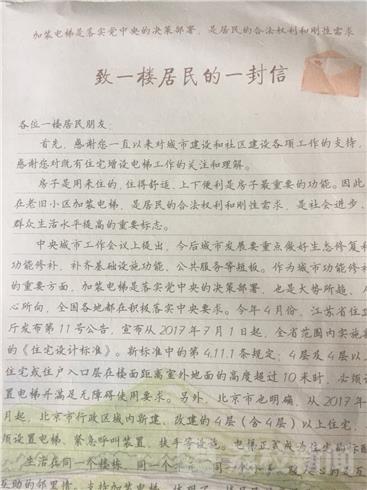 加装电梯是落实党中央的决策部署，是居民的合法权利和刚性需求
致一楼居民的一封信
各位一楼居民朋友：
首先，感谢您一直以来对城市建设和社区建设各项工作的支持，
感谢您对既有住宅增设电梯工作的关注和理解。
房子是用来住的，住得舒适，上下便利是房子最重要的功能。因此
在老旧小区加装电梯，是居民的合法权利和刚性需求，是社会进步、
群众生活水平提高的重要标志。
中央城市工作会议上提出，今后城市发展要重点做好生态修复和
功能修补，补齐基础设施功能、公共服务等短板。作为城市功能修补
的重要方面，加装电梯是落实党中央的决策部署，也是大势所趋、人
心所向，全国各地都在积极落实中央要求。今年4月份，江苏省住建
厅发布第11号公告，宣布从2017年7月1日起，全省范围内实施新
的《住宅设计标准》。新标准中的第4.11.1条规定：4层及4层以上
住宅或住户入口层在楼面距离室外地面的高度超过10米时，必须设
置电梯并满足无障碍使用要求。另外，北京市也明确，从2017年
月起，北京市行政区域内新建、改建的4层（含4层）以上住宅，
须设置电梯、紧急呼叫装置、扶手等设施。电梯正式成为住宅的标配
生活在同一个楼栋，同一个
互助的邻里情。支持加装电梯，体现了